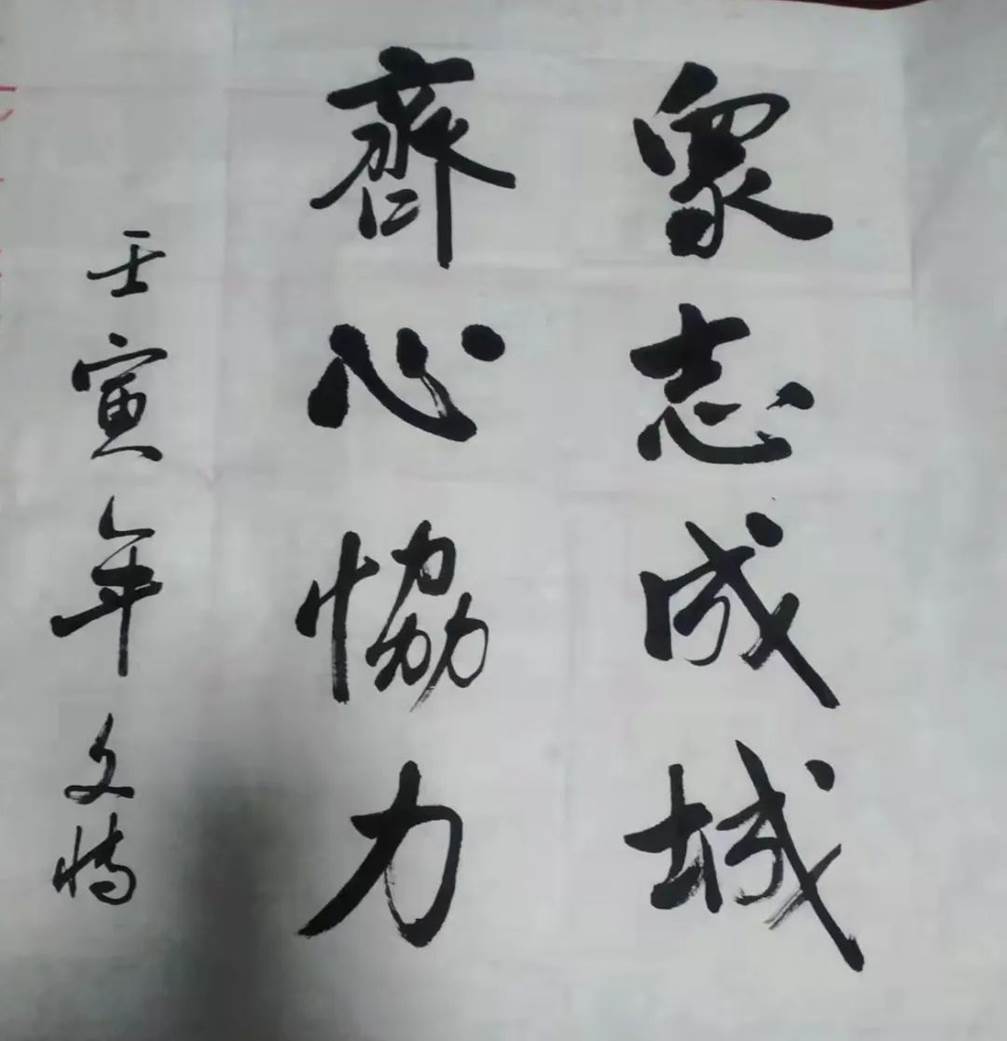 眾志成城
齊心恊力
壬寅年文